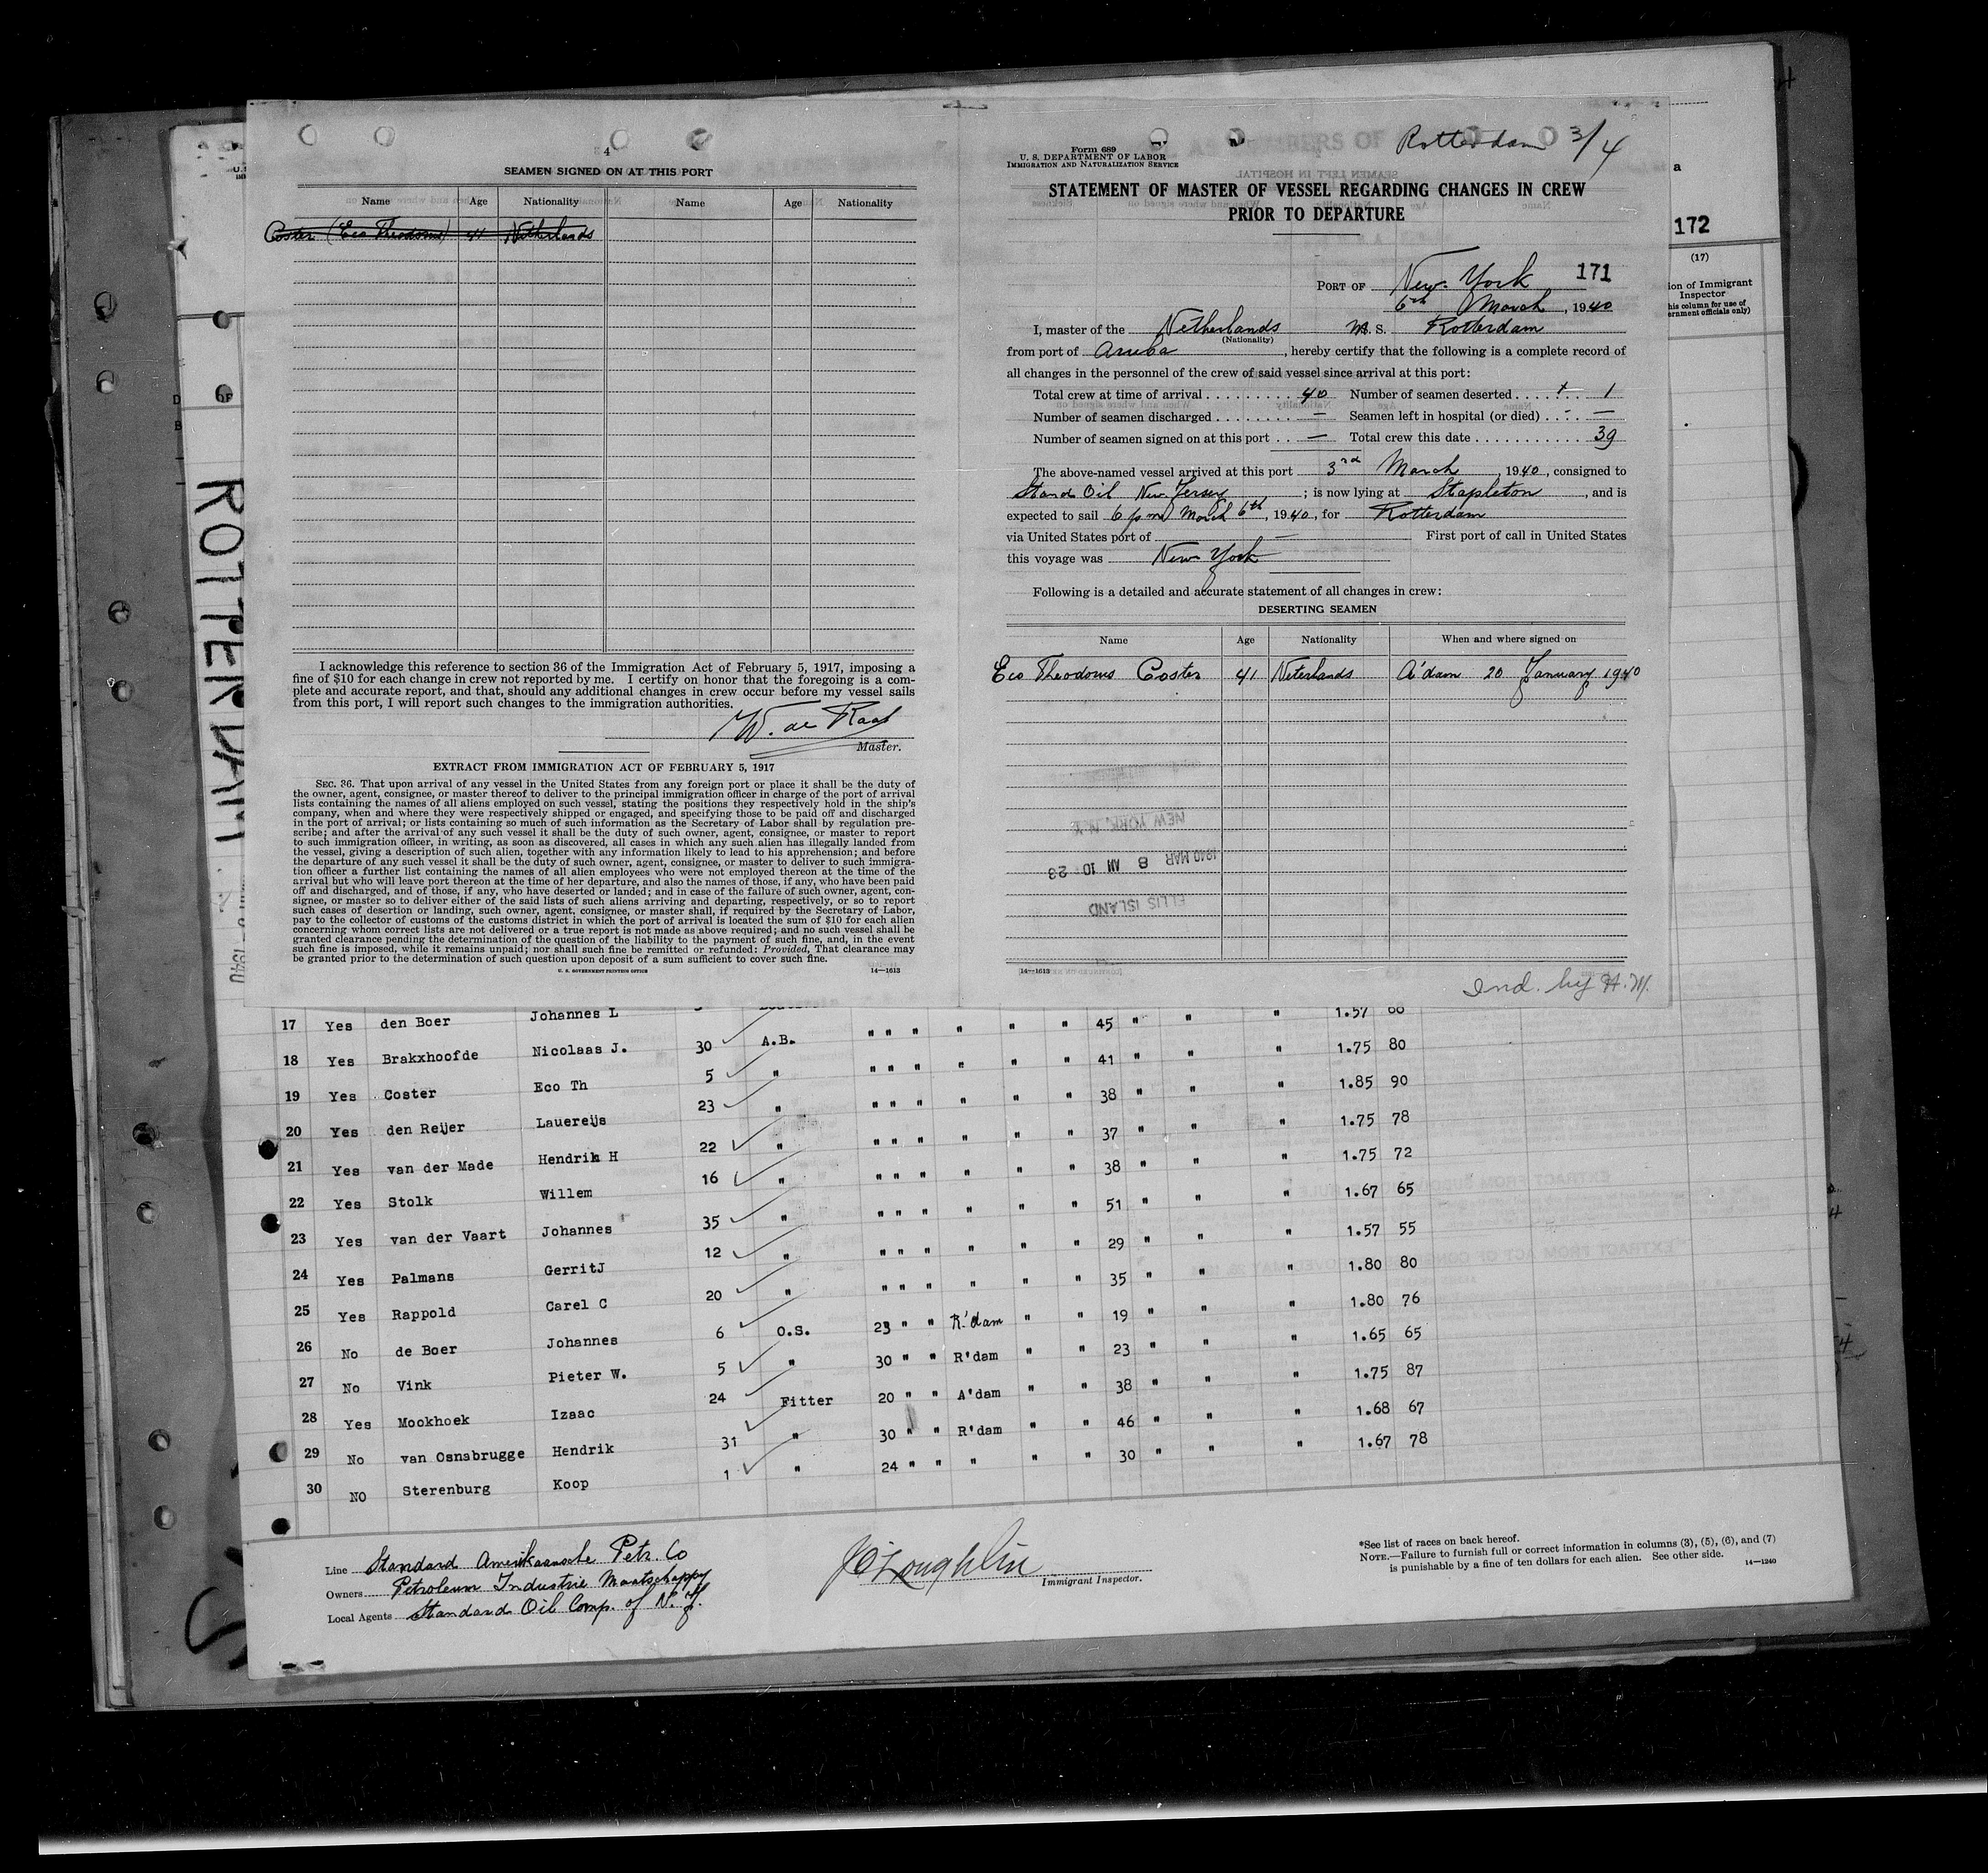 4
SEAMEN SIGNED ON AT THIS PORT
Name Age Nationality Name Age Nationality
Coster (Eco Theodorus) 41 Netherlands
I acknowledge this reference to section 36 of the Immigration Act of February 5, 1917, imposing a
fine of $10 for each change in crew not reported by me. I certify on honor that the foregoing is a com-
plete and accurate report, and that, should any additional changes in crew occur before my vessel sails
from this port, I will report such changes to the immigration authorities.
W. de Raat
Master.
EXTRACT FROM IMMIGRATION ACT OF FEBRUARY 5, 1917
SEC. 36. That upon arrival of any vessel in the United States from any foreign port or place it shall be the duty of
the owner, agent, consignee, or master thereof to deliver to the principal immigration officer in charge of the port of arrival
lists containing the names of all aliens employed on such vessel, stating the positions they respectively hold in the ship's
company, when and where they were respectively shipped or engaged, and specifying those to be paid off and discharged
in the port of arrival; or lists containing so much of such information as the Secretary of Labor shall by regulation pre-
scribe; and after the arrival of any such vessel it shall be the duty of such owner, agent, consignee, or master to report
to such immigration officer, in writing, as soon as discovered, all cases in which any such alien has illegally landed from
the vessel, giving a description of such alien, together with any information likely to lead to his apprehension; and before
the departure of any such vessel it shall be the duty of such owner, agent, consignee, or master to deliver to such immigra-
tion officer a further list containing the names of all alien employees who were not employed thereon at the time of the
arrival but who will leave port thereon at the time of her departure, and also the names of those, if any, who have been paid
off and discharged, and of those, if any, who have deserted or landed; and in case of the failure of such owner, agent, con-
signee, or master so to deliver either of the said lists of such aliens arriving and departing, respectively, or so to report
such cases of desertion or landing, such owner, agent, consignee, or master shall, if required by the Secretary of Labor,
pay to the collector of customs of the customs district in which the port of arrival is located the sum of $10 for each alien
concerning whom correct lists are not delivered or a true report is not made as above required; and no such vessel shall be
granted clearance pending the determination of the question of the liability to the payment of such fine, and, in the event
such fine is imposed, while it remains unpaid; nor shall such fine be remitted or refunded: Provided, That clearance may
be granted prior to the determination of such question upon deposit of a sum sufficient to cover such fine.
U. S. GOVERNMENT PRINTING OFFICE 14—1613
Form 689
U. S. DEPARTMENT OF LABOR
IMMIGRATION AND NATURALIZATION SERVICE
Rotterdam 3/4
STATEMENT OF MASTER OF VESSEL REGARDING CHANGES IN CREW
PRIOR TO DEPARTURE
PORT OF New York 171
6th March, 1940
I, master of the Netherlands M. S. Rotterdam
(Nationality)
from port of Aruba, hereby certify that the following is a complete record of
all changes in the personnel of the crew of said vessel since arrival at this port:
Total crew at time of arrival 40 Number of seamen deserted 1
Number of seamen discharged — Seamen left in hospital (or died) —
Number of seamen signed on at this port — Total crew this date 39
The above-named vessel arrived at this port 3rd March, 1940, consigned to
Stand Oil New Jersey; is now lying at Stapleton, and is
expected to sail 6 pm March 6th, 1940, for Rotterdam
via United States port of — First port of call in United States
this voyage was New York
Following is a detailed and accurate statement of all changes in crew:
DESERTING SEAMEN
Name Age Nationality When and where signed on
Eco Theodorus Coster 41 Neterlands A'dam 20 January 1940
NEW YORK, N.Y.
1940 MAR 8 AM 10 23
ELLIS ISLAND
14—1613
Ind. by H.M.
ROTTERDAM
a
172
(17)
ion of Immigrant
Inspector
his column for use of
ernment officials only)
17 Yes den Boer Johannes L " " " " " " 45 " " " 1.57 60
18 Yes Brakxhoofde Nicolaas J. 30 A.B. " " " " " " 41 " " " 1.75 80
19 Yes Coster Eco Th 5 " " " " " " " 38 " " " 1.85 90
20 Yes den Reijer Lauereijs 23 " " " " " " " 37 " " " 1.75 78
21 Yes van der Made Hendrik H 22 " " " " " " " 38 " " " 1.75 72
22 Yes Stolk Willem 16 " " " " " " " 51 " " " 1.67 65
23 Yes van der Vaart Johannes 35 " " " " " " " 29 " " " 1.57 55
24 Yes Palmans GerritJ 12 " " " " " " " 35 " " " 1.80 80
25 Yes Rappold Carel C 20 " 23 " " R'dam " " 19 " " " 1.80 76
26 No de Boer Johannes 6 O.S. 30 " " R'dam " " 23 " " " 1.65 65
27 No Vink Pieter W. 5 " 20 " " A'dam " " 38 " " " 1.75 87
28 Yes Mookhoek Izaac 24 Fitter 30 " " R'dam " " 46 " " " 1.68 67
29 No van Osnabrugge Hendrik 31 " 24 " " " " " 30 " " " 1.67 78
30 NO Sterenburg Koop 1 "
Line Standard Amerikaansche Petr. Co
Owners Petroleum Industrie Maatschappy
Local Agents Standard Oil Comp. of N. J.
JO'Loughlin
Immigrant Inspector.
*See list of races on back hereof.
NOTE.—Failure to furnish full or correct information in columns (3), (5), (6), and (7)
is punishable by a fine of ten dollars for each alien. See other side. 14—1240